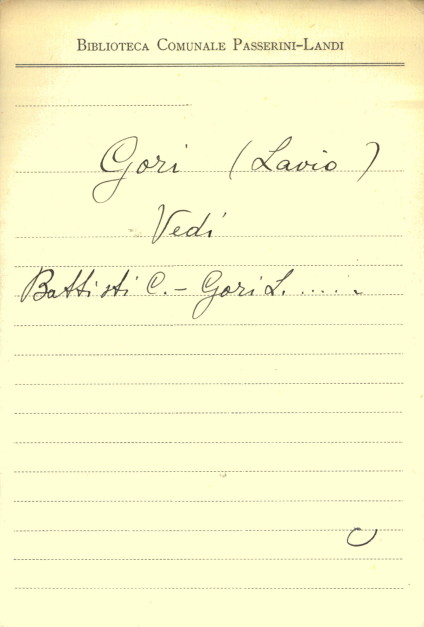 BIBLIOTECA COMUNALE PASSERINI-LANDI
Gori (Lavio)
Vedi
Battisti C. - Gori L. .....